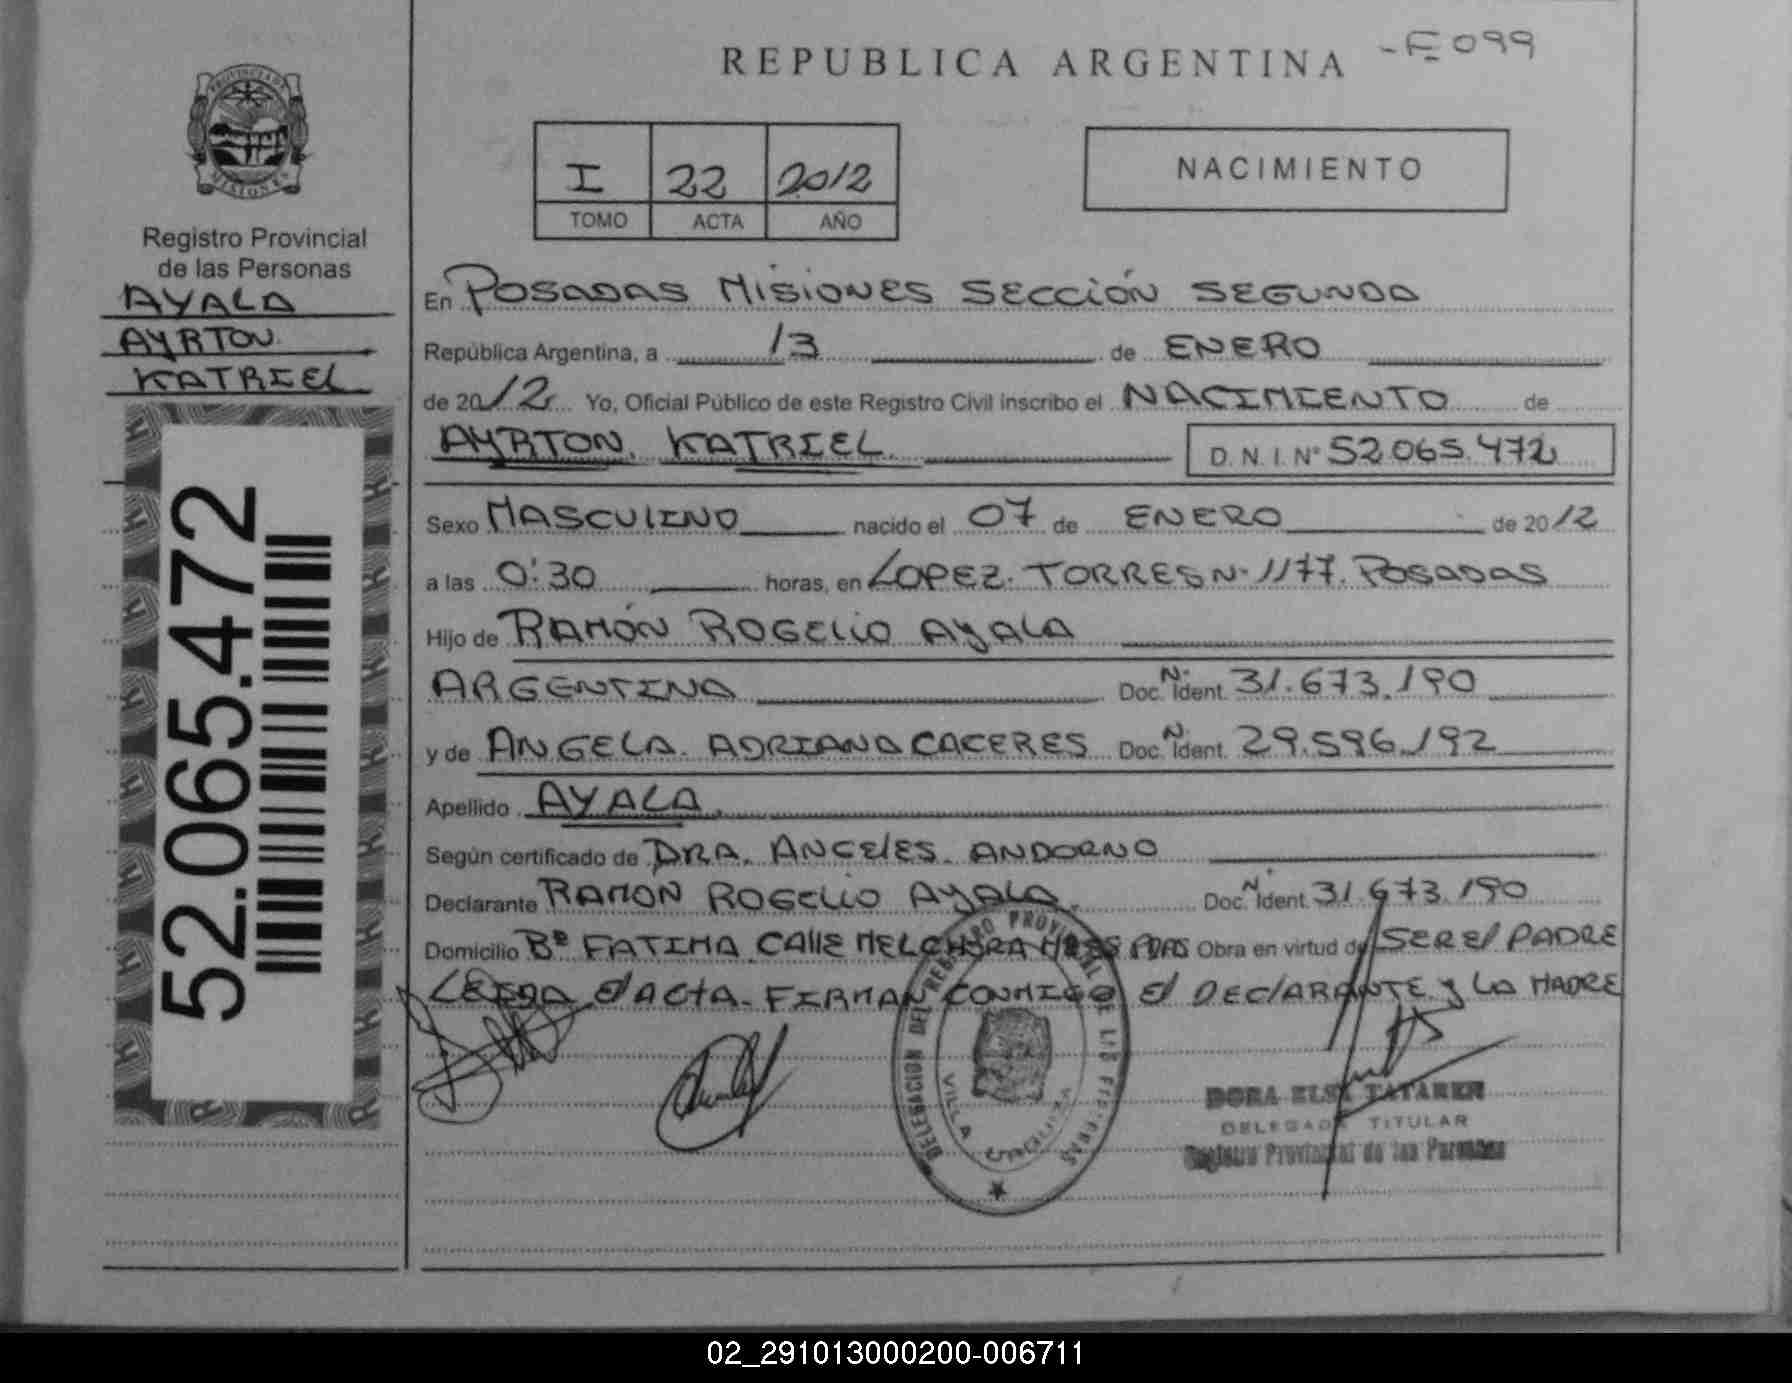 REPUBLICA ARGENTINA -F 099
PROVINCIA DE MISIONES
Registro Provincial
de las Personas
AYALA
AYRTON
KATRIEL
52.065.472
I 22 2012
TOMO ACTA AÑO
NACIMIENTO
En POSADAS MISIONES SECCIÓN SEGUNDA
República Argentina, a 13 de ENERO
de 2012 Yo, Oficial Público de este Registro Civil inscribo el NACIMIENTO de
AYRTON. KATRIEL. D.N.I. N° 52.065.472
Sexo MASCULINO nacido el 07 de ENERO de 2012
a las 0:30 horas, en LOPEZ. TORRES N° 1177. POSADAS
Hijo de RAMÓN ROGELIO AYALA
ARGENTINA Doc. N° Ident. 31.673.190
y de ANGELA. ADRIANA CACERES Doc. N° Ident. 29.596.192
Apellido AYALA.
Según certificado de DRA. ANGELES. ANDORNO
Declarante RAMON ROGELIO AYALA. Doc. N° Ident. 31.673.190
Domicilio B° FATIMA CALLE MELCHORA PDAS Obra en virtud de SER El PADRE
LEIDA El ACTA. FIRMAN CONMIGO El DEClARANTE y LA MADRE
DELEGACION DEL REGISTRO PROVINCIAL DE LAS PERSONAS
VILLA
DORA ELSA
DELEGADA TITULAR
Registro Provincial de las Personas
02_291013000200-006711